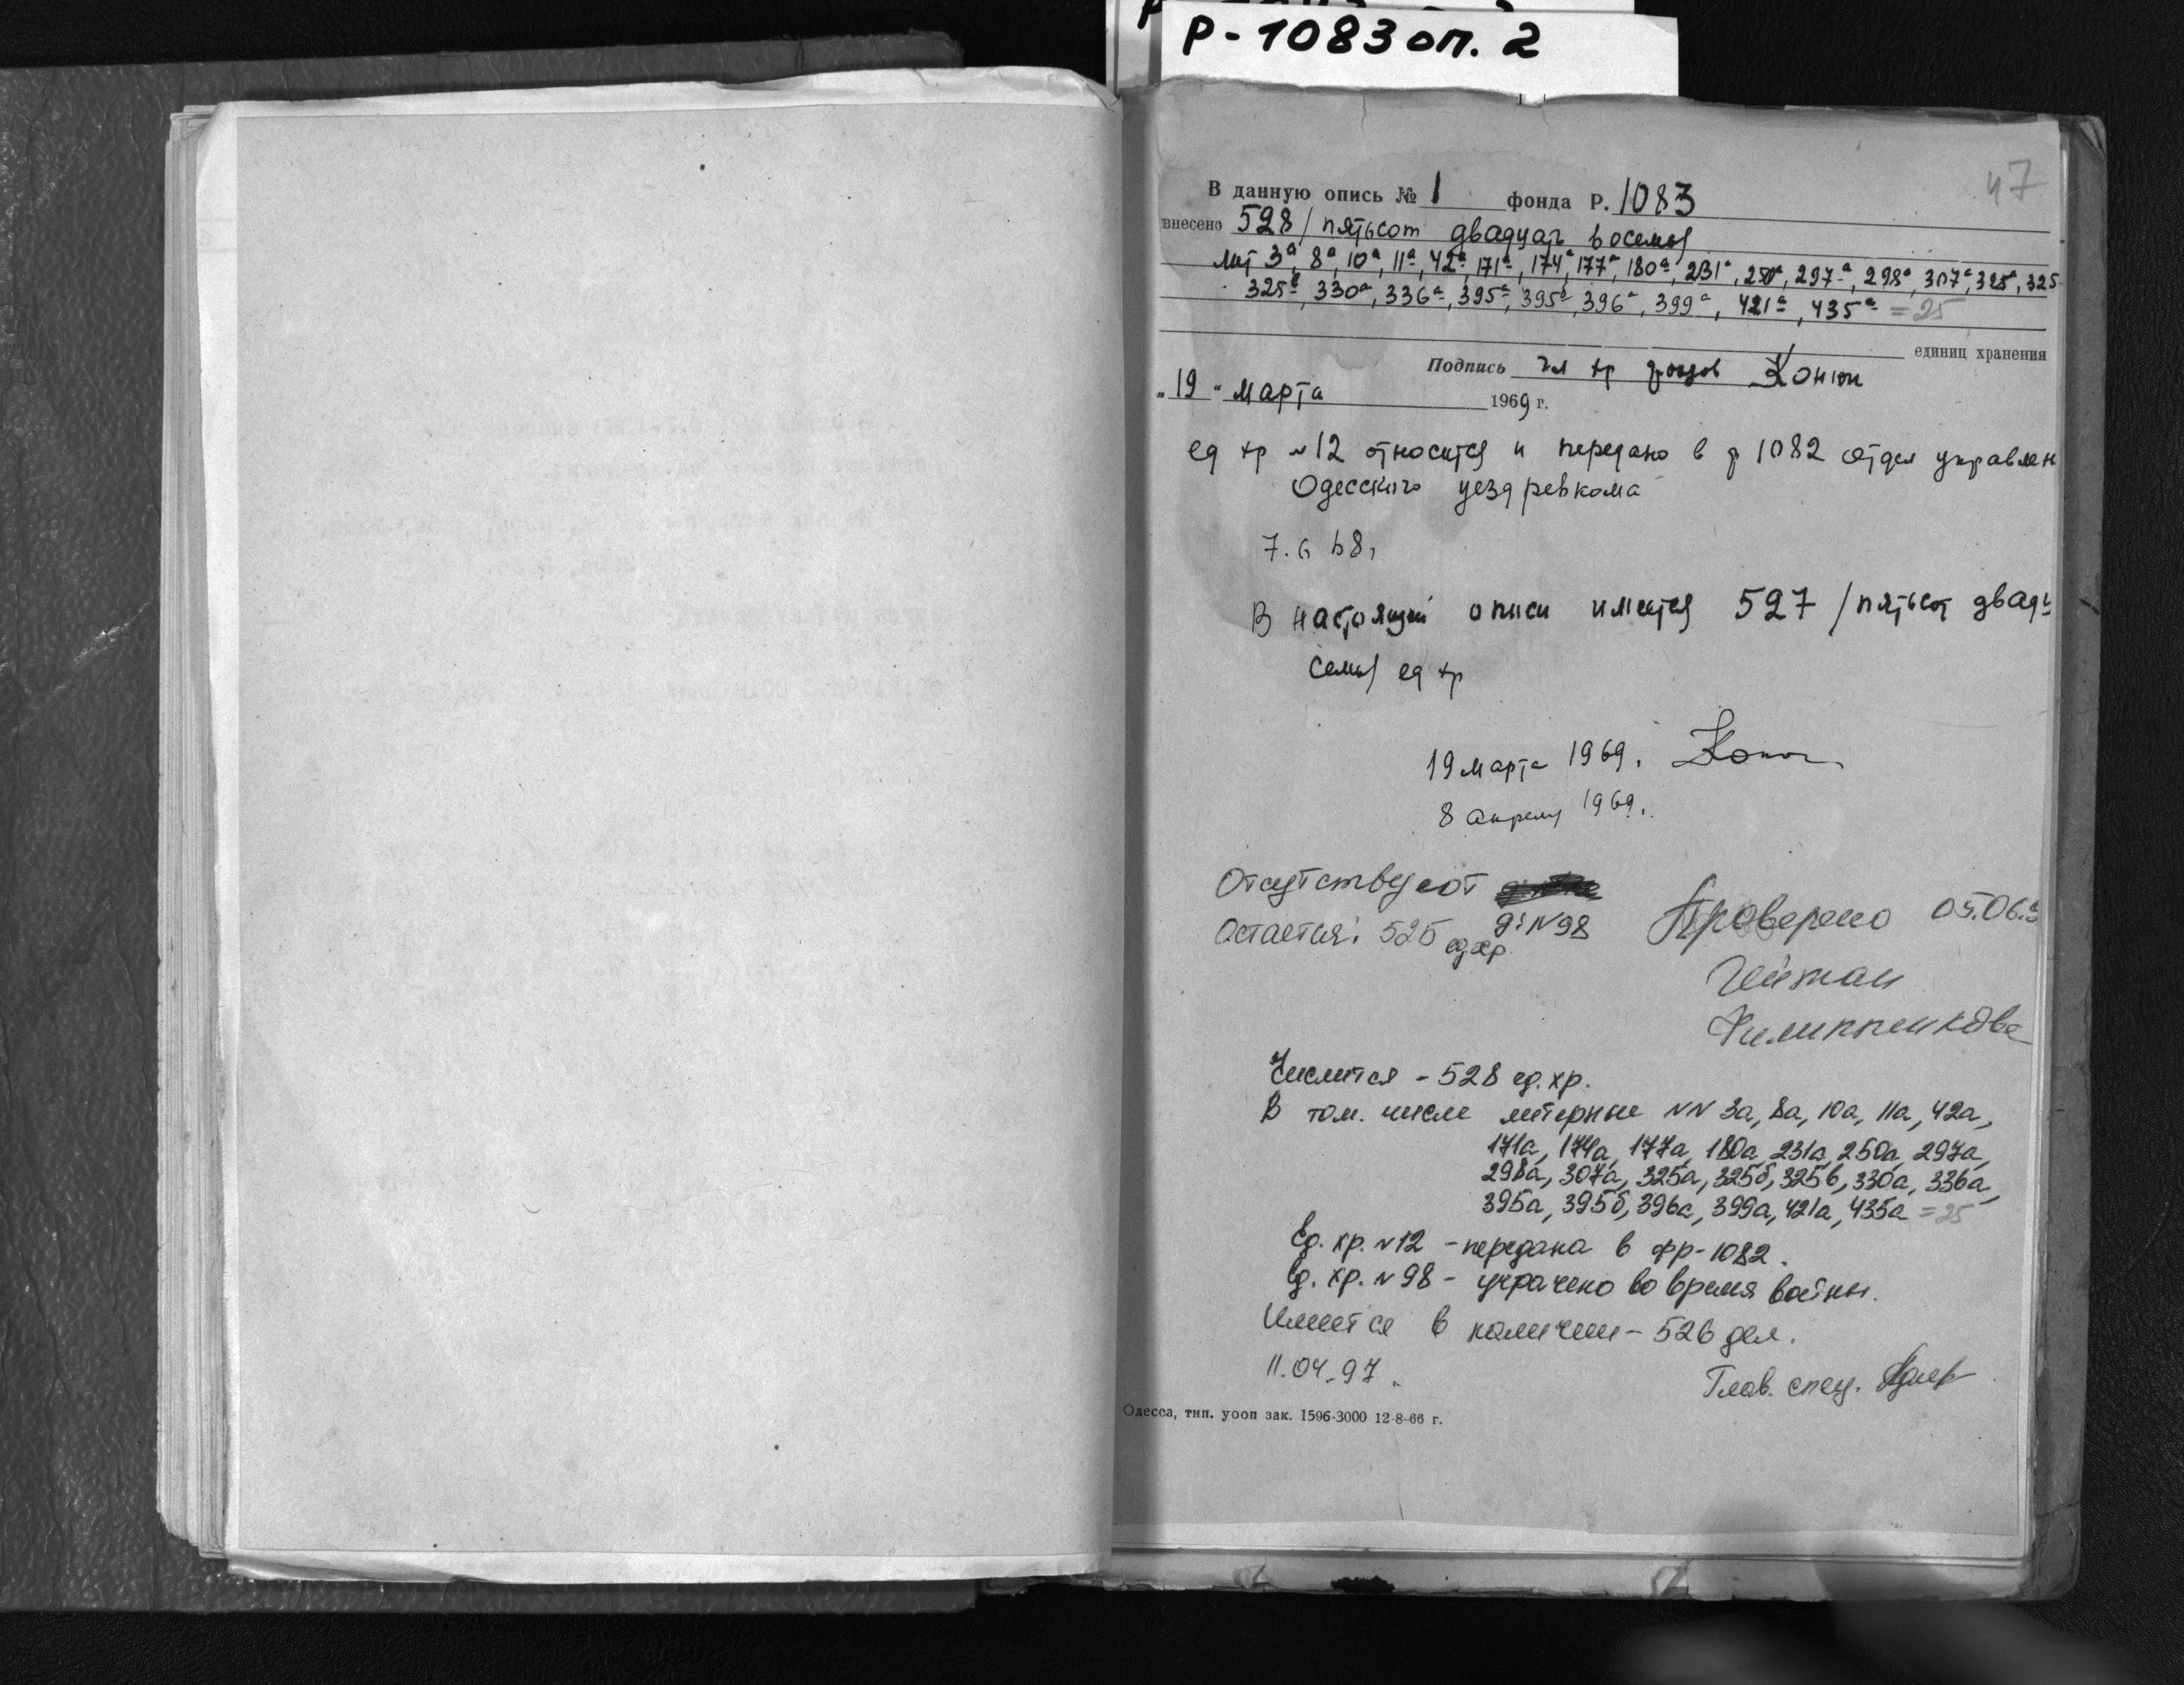 Р-1083 оп. 2
47
В данную опись № 1 фонда Р. 1083
внесено 528 / пятьсот двадцать восемь
лит 3а, 8а, 10а, 11а, 42а, 171а, 174а, 177а, 180а, 231а, 250а, 297а, 298а, 307а, 325а, 325
325в, 330а, 336а, 395а, 395б, 396а, 399а, 421а, 435а = 25
единиц хранения
Подпись хр фондов
„19“ марта 1969 г.
ед хр №12 относится и передано в ф 1082 отдел управлен
Одесского уездревкома
7.6 68,
В настоящей описи имеется 527 / пятьсот двадц
семь ед хр
19 марта 1969.
8 апреля 1969.
Отсутствуют
д: №98
Остается: 525 ед.хр
Проверено 05.06.9
Филиппенкова
Числится - 528 ед. хр.
В том. числе литерные №№ 3а, 8а, 10а, 11а, 42а,
171а, 174а, 177а, 180а, 231а, 250а, 297а,
298а, 307а, 325а, 325б, 325в, 330а, 336а,
395а, 395б, 396а, 399а, 421а, 435а = 25
Ед. хр. №12 - передана в фр-1082.
Ед. хр. №98 - утрачено во время войны.
Имеется в наличии - 526 дел.
11.04.97.
Глав. спец.
Одесса, тип. уооп зак. 1596-3000 12-8-66 г.